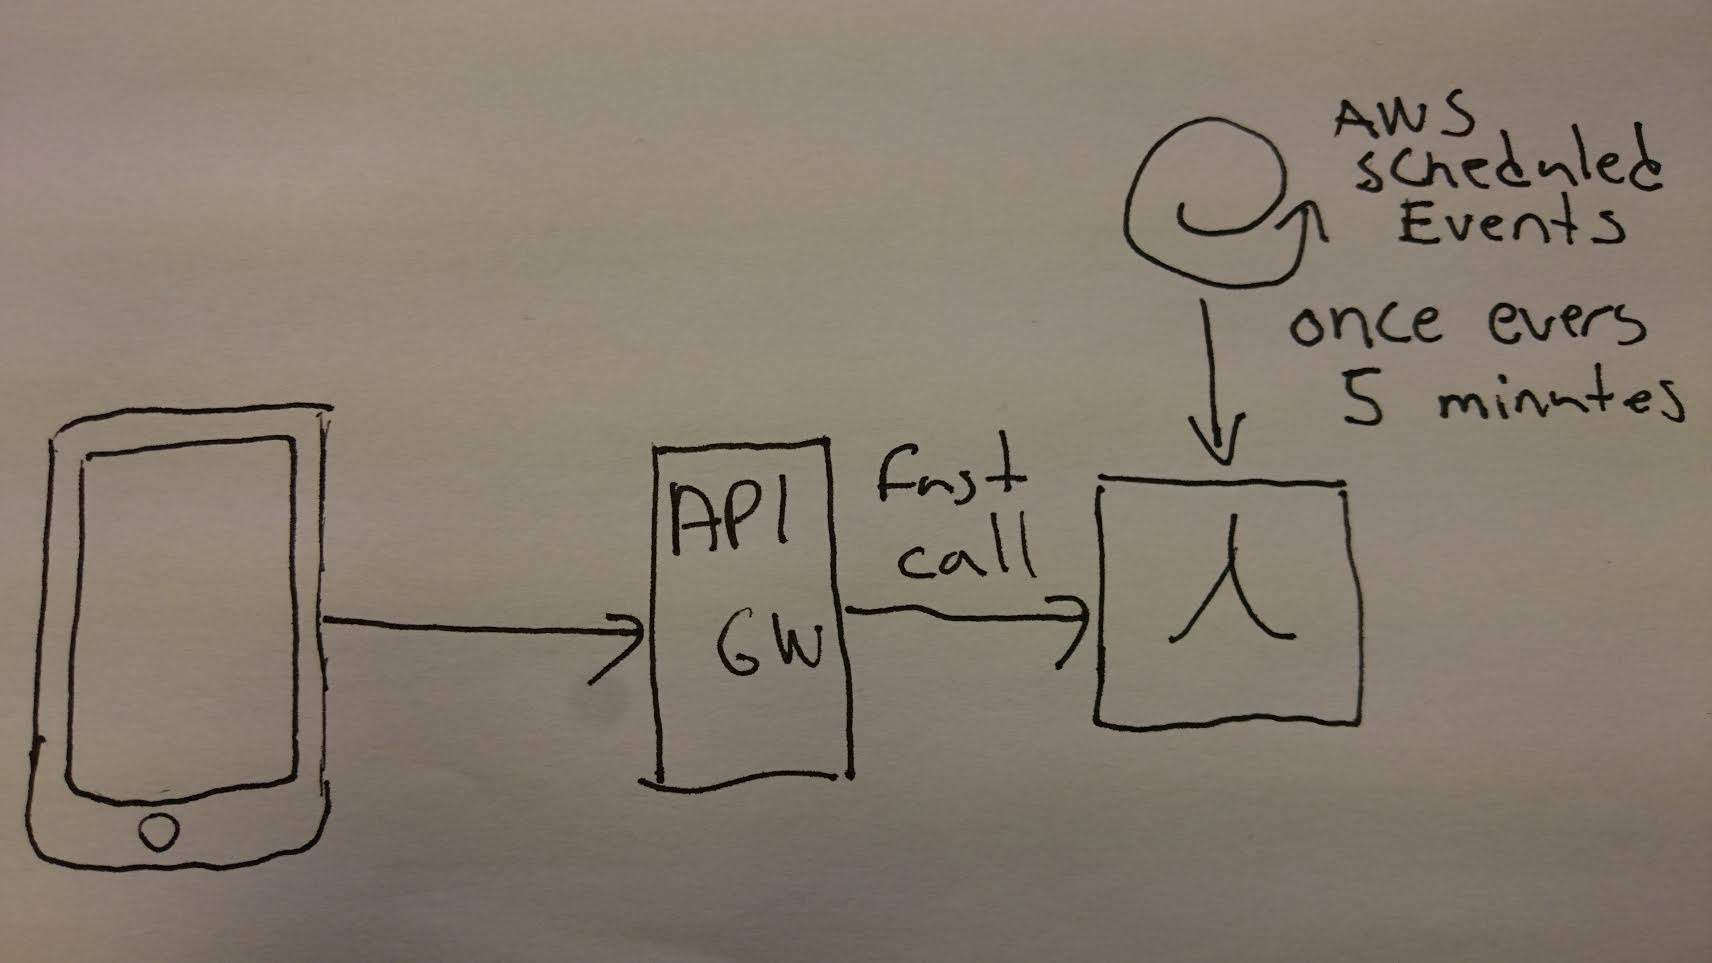 AWS
scheduled
Events
once evers
5 minutes
API
GW
fast
call
λ